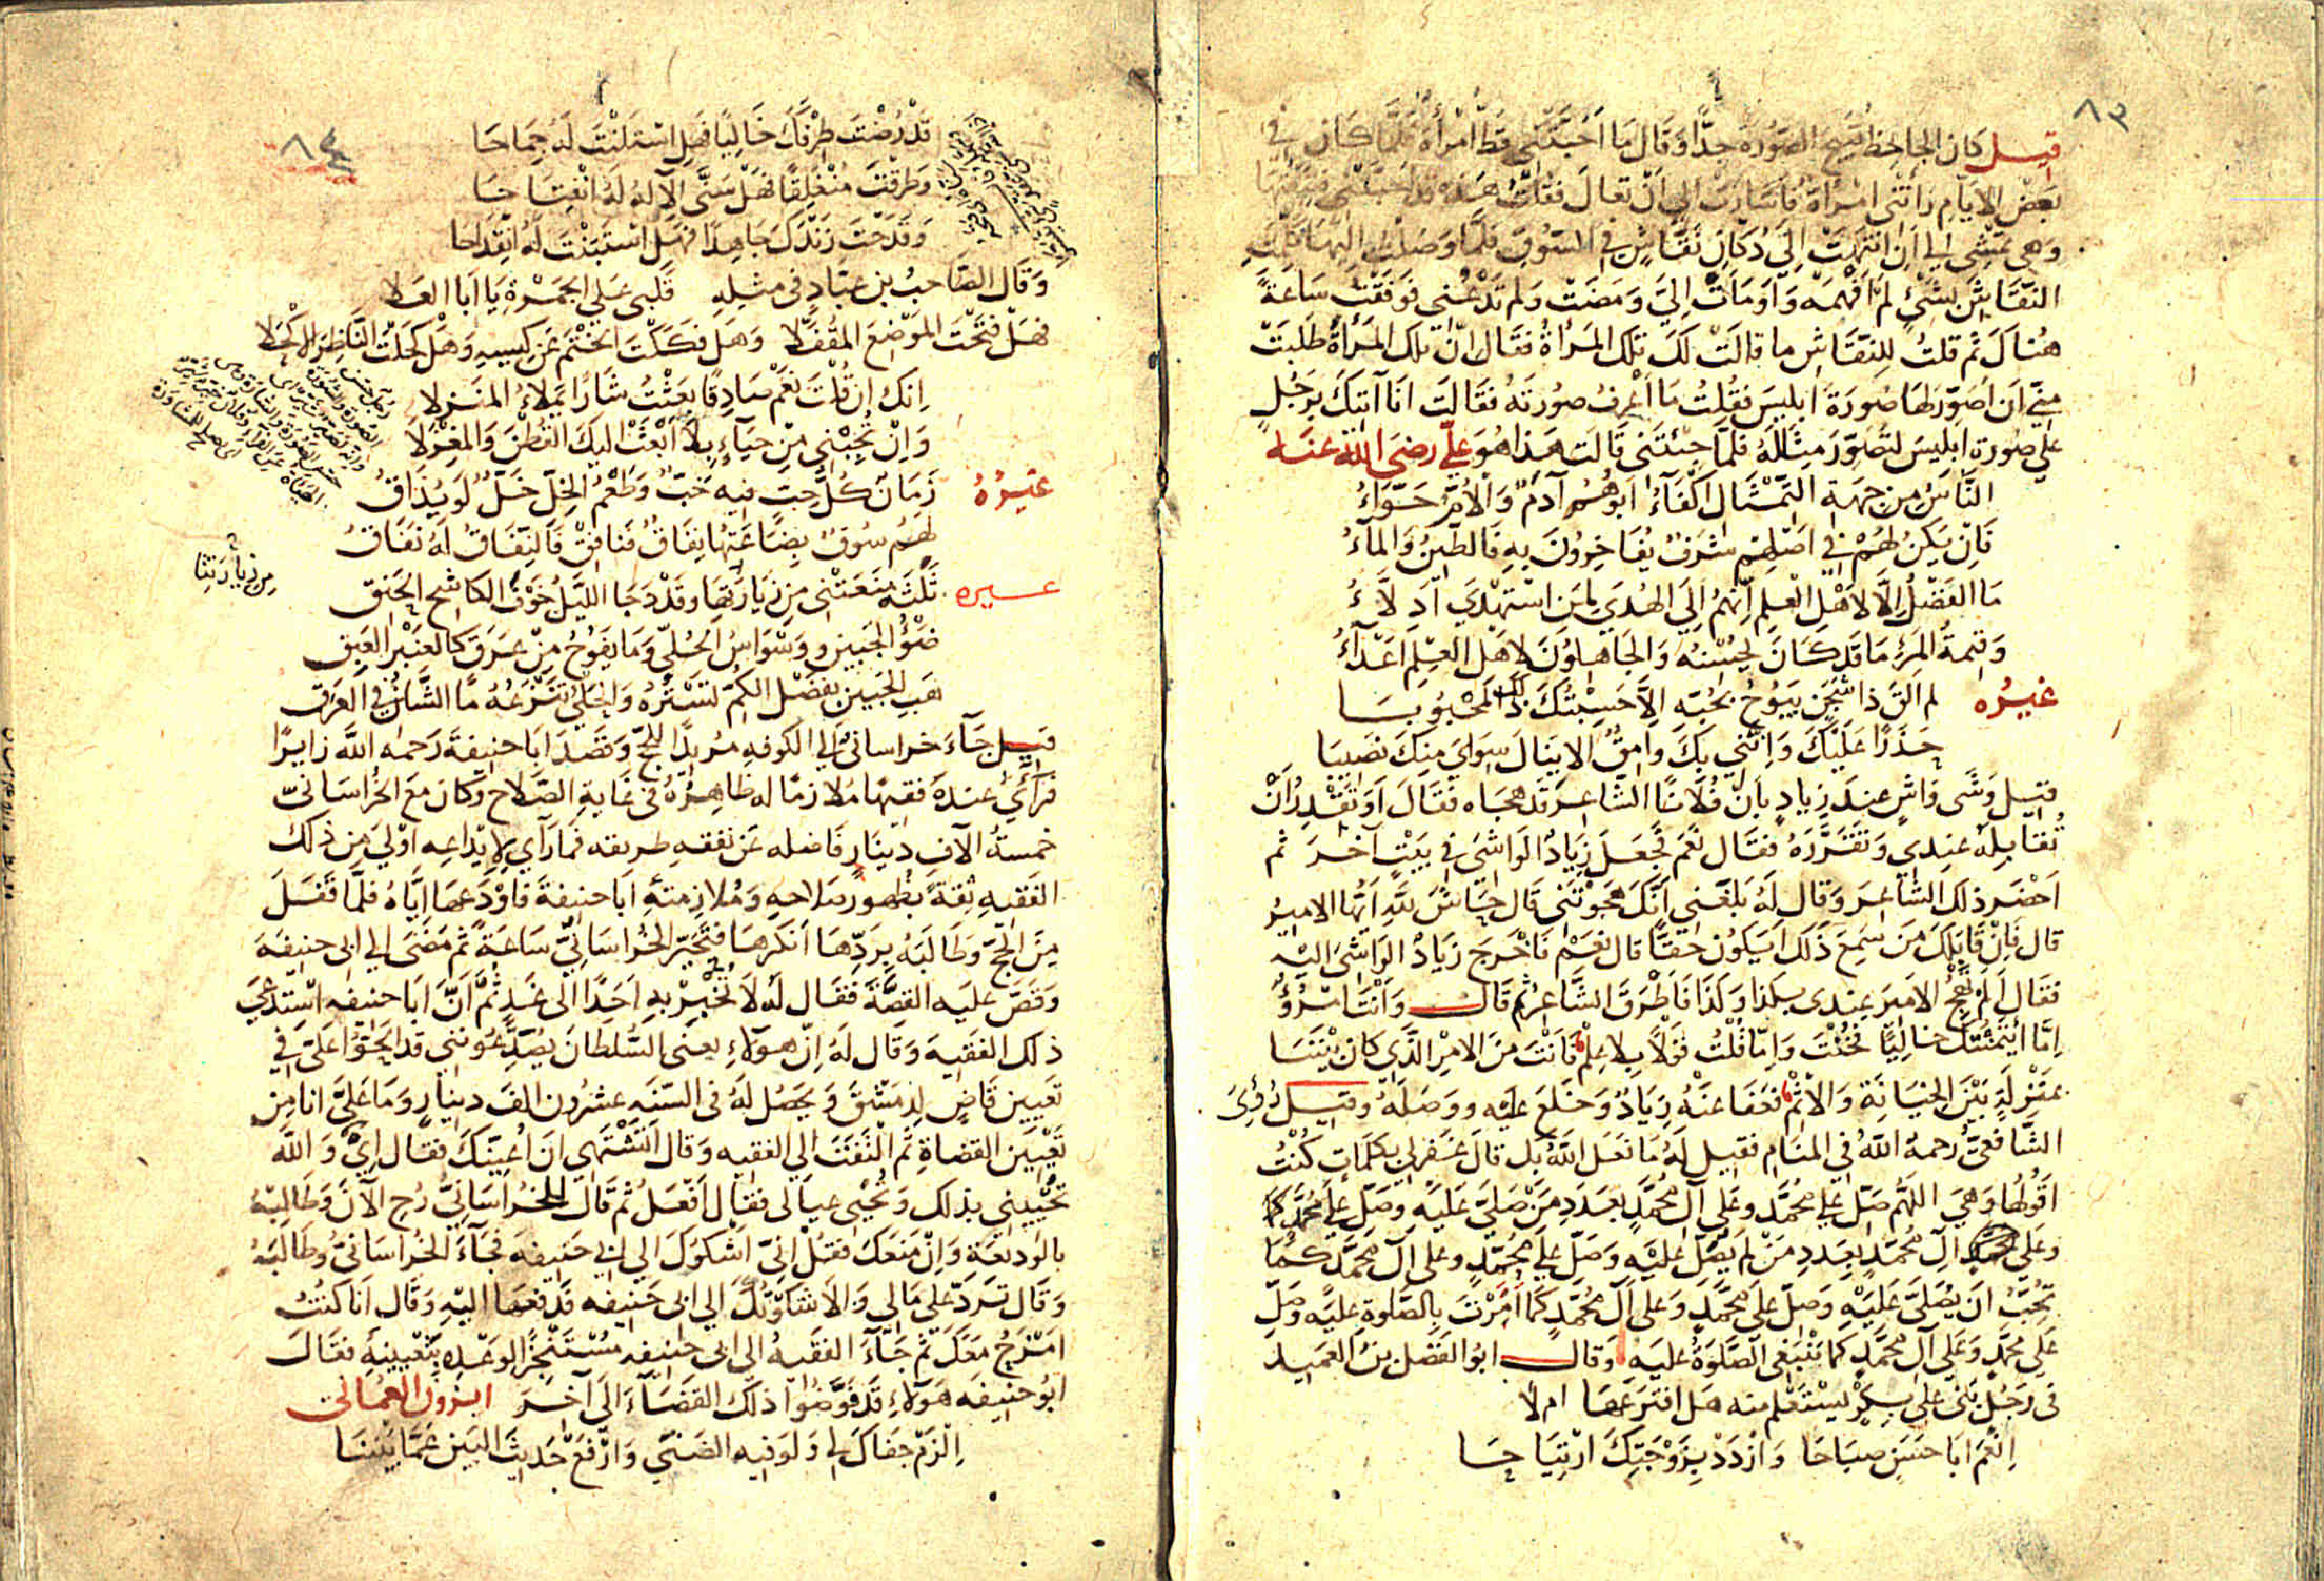 ٨٣
قيل كان الجاحظ قبيح الصورة جدا وقال ما اخجلتني قط امرأة فلما كان في
بعض الايام رأتني امرأة فاشارت الي ان تعال فقلت هذه قد احبتني فتبعتها
وهي تمشي الي ان انتهت الي دكان نقاش في السوق فلما وصلت اليها قالت
النقاش بشئ لم افهمه واومأت الي ومضت ولم تدعني فوقفت ساعة
هناك ثم قلت للنقاش ما قالت لك تلك المرأة فقال ان تلك المرأة طلبت
مني ان اصور لها صورة ابليس فقلت ما اعرف صورته فقالت انا آتيك برجل
علي صورة ابليس لتصور مثاله فلما جئتني قالت هذا هو علي رضي الله عنه
الناس من جهة التمثال اكفاء ابوهم آدم والام حواء
فان يكن لهم في اصلهم شرف يفاخرون به فالطين والماء
ما الفضل الا لاهل العلم انهم الي الهدي لمن استهدي ادلاء
وقيمة المرء ما قد كان يحسنه والجاهلون لاهل العلم اعداء
غيره لم الق ذا شجن يبوح بحبه الا حسبتك ذلك المحبوبا
حذرا عليك وانني بك واثق الا ينال سواي منك نصيبا
قيل وشي واش عند زياد بان فلانا الشاعر قد هجاه فقال او تقدر ان
تقابله عندي وتقرره فقال نعم فجعل زياد الواشي في بيت آخر ثم
احضر ذلك الشاعر وقال له بلغني انك هجوتني قال حاش لله ايها الامير
قال فان قابلك من سمع ذلك ايكون حقا قال نعم فاخرج زياد الواشي اليه
فقال الم تهج الامير عندي بكذا وكذا فاطرق الشاعر ثم قال وانت امرؤ
اما ائتمنتك خاليا فخنت واما قلت قولا بلا علم فانت من الامر الذي كان بيننا
بمنزلة بين الخيانة والاثم فعفا عنه زياد وخلع عليه ووصله وقيل رؤي
الشافعي رحمه الله في المنام فقيل له ما فعل الله بك قال غفر لي بكلمات كنت
اقولها وهي اللهم صل علي محمد وعلي آل محمد بعدد من صلي عليه وصل علي محمد كما
وعلي آل محمد بعدد من لم يصل عليه وصل علي محمد وعلي آل محمد كما
تحب ان يصلي عليه وصل علي محمد وعلي آل محمد كما امرت بالصلوة عليه وصل
علي محمد وعلي آل محمد كما تنبغي الصلوة عليه وقال ابو الفضل بن العميد
في رجل بني علي بكر يستعلم منه هل افترعها ام لا
انعم ابا حسن صباحا وازدد بزوجتك ارتياحا
٨٤
قد رضت طرفك خاليا فهل استلنت له جماحا
وطرقت منغلقا فهل سني الاله له انفتاحا
وقدحت زندك جاهدا فهل استبنت له انقداحا
وقال الصاحب بن عباد في مثله قلبي علي الجمرة يا ابا العلا
فهل فتحت الموضع المقفلا وهل فككت الختم عن كيسه وهل كحلت الناظر الاكحلا
انك ان قلت نعم صادقا بعثت نثارا يملاء المنزلا
وان تجبني من حياء بلا ابعث اليك القطن والمغزلا
غيره زمان كل حب فيه خب وطعم الخل خل لو يذاق
لهم سوق بضاعتها نفاق فنافق فالنفاق له نفاق
غيره ثلثة منعتني من زيارتها وقد دجا الليل خوف الكاشح الحنق
من زيارتنا
ضوء الجبين ووسواس الحلي وما يفوح من عرق كالعنبر العبق
هب الجبين بفضل الكم تستره والحلي تنزعه ما الشأن في العرق
قيل جاء خراساني الي الكوفة مريدا للحج وقصد ابا حنيفة رحمه الله زايرا
فرأي عنده فقيها ملازما له ظاهره في غاية الصلاح وكان مع الخراساني
خمسة آلاف دينار فاضله عن نفقه طريقه فما رآي لايداعه اولي من ذلك
الفقيه ثقة بظهور صلاحه وملازمته ابا حنيفة فاودعها اياه فلما قفل
من الحج وطالبه بردها انكرها فتحير الخراساني ساعة ثم مضي الي ابي حنيفة
وقص عليه القصة فقال له لا تخبر به احدا الي غد ثم ان ابا حنيفه استدعي
ذلك الفقيه وقال له ان هولاء يعني السلطان يصدعونني قد الحوا علي في
تعيين قاض لدمشق ويحصل له في السنه عشرون الف دينار وما علي انا من
تعيين القضاة ثم التفت الي الفقيه وقال اتشتهي ان اعينك فقال اي والله
تحييني بذلك وتحيي عيالي فقال افعل ثم قال للخراساني رح الآن وطالبه
بالوديعة وان منعك فقل اني اشكوك الي ابي حنيفة فجاء الخراساني وطالبه
وقال ترد علي مالي والا شكوتك الي ابي حنيفه فدفعها اليه وقال انا كنت
امزح معك ثم جاء الفقيه الي ابي حنيفه مستنجزا لوعده بتعيينه فقال
ابو حنيفه هولاء قد فوضوا ذلك القضاء الي آخر ابزون العماني
الزم جفاك لي ولو فيه الضني وارفع حديث البين عما بيننا